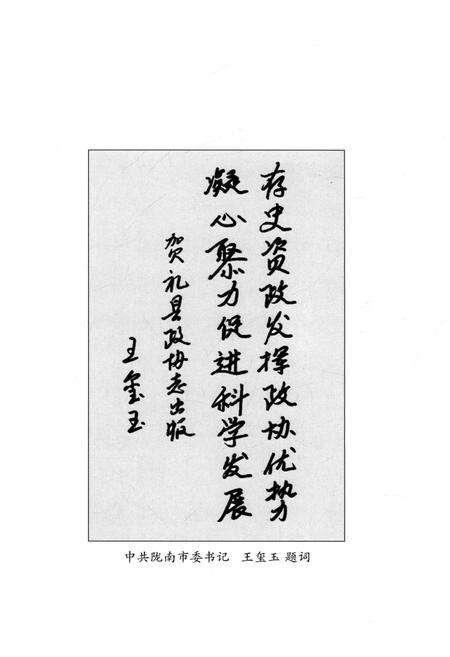 存史资政发挥政协优势
凝心聚力促进科学发展
贺礼县政协志出版
王玺玉
中共陇南市委书记 王玺玉 题词